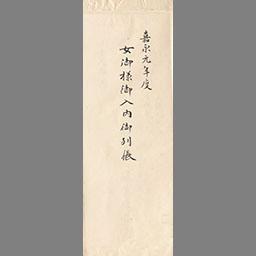 嘉永元年度
女御様御入内御列帳